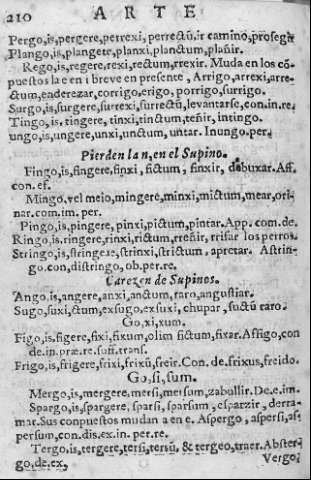 210 ARTE
Pergo,is,pergere,perrexi,perrectũ,ir camino,prosegir
Plango,is,plangere,planxi,planctum,plañir.
Rego,is,regere,rexi,rectum,rregir. Muda en los cõ-
puestos la e en i breve en presente, Arrigo,arrexi,arre-
ctum,enderezar,corrigo.erigo, porrigo,surrigo.
Surgo,is,surgere,surrexi,surrectũ,levantarse,con.in.re.
Tingo,is,tingere, tinxi,tinctum,teñir, intingo.
ungo,is,ungere,unxi,unctum, untar. Inungo.per.
Pierden la n,en el Supino.
Fingo,is,fingere,finxi, fictum, finxir, debuxar.Aff.
con.ef.
Mingo,vel meio,mingere,minxi,mictum,mear,ori-
nar.com.im.per.
Pingo,is,pingere, pinxi,pictum,pintar.App. com.de.
Ringo,is,ringere,rinxi,rictum,rreñir,rrifar los perros.
Stringo,is,stringere,strinxi,strictum, apretar. Astrin-
go.con,distringo,ob.per.re.
Carezen de Supinos.
Ango,is,angere,anxi,anctum,raro,angustiar.
Sugo,suxi,ctum,exsugo,exsuxi,chupar,suctũ raro.
Go,xi,xum.
Figo,is.figere,fixi,fixum,olim fictum,fixar.Affigo,con
de.in.præ.re.suff.trans.
Frigo,is,frigere,frixi,frixũ,freir.Con. de.frixus,freido.
Go,si,sum.
Mergo,is,mergere,mersi,mersum,zabullir.De.e.im.
Spargo,is,spargere, sparsi, sparsum, esparzir, derra-
mar.Sus conpuestos mudan a en e. Aspergo, aspersi,as-
persum,con.dis.ex.in.per.re.
Tergo,is,tergere,tersi,tersũ, & tergeo,traer.Abster-
go,de.ex, Vergo,